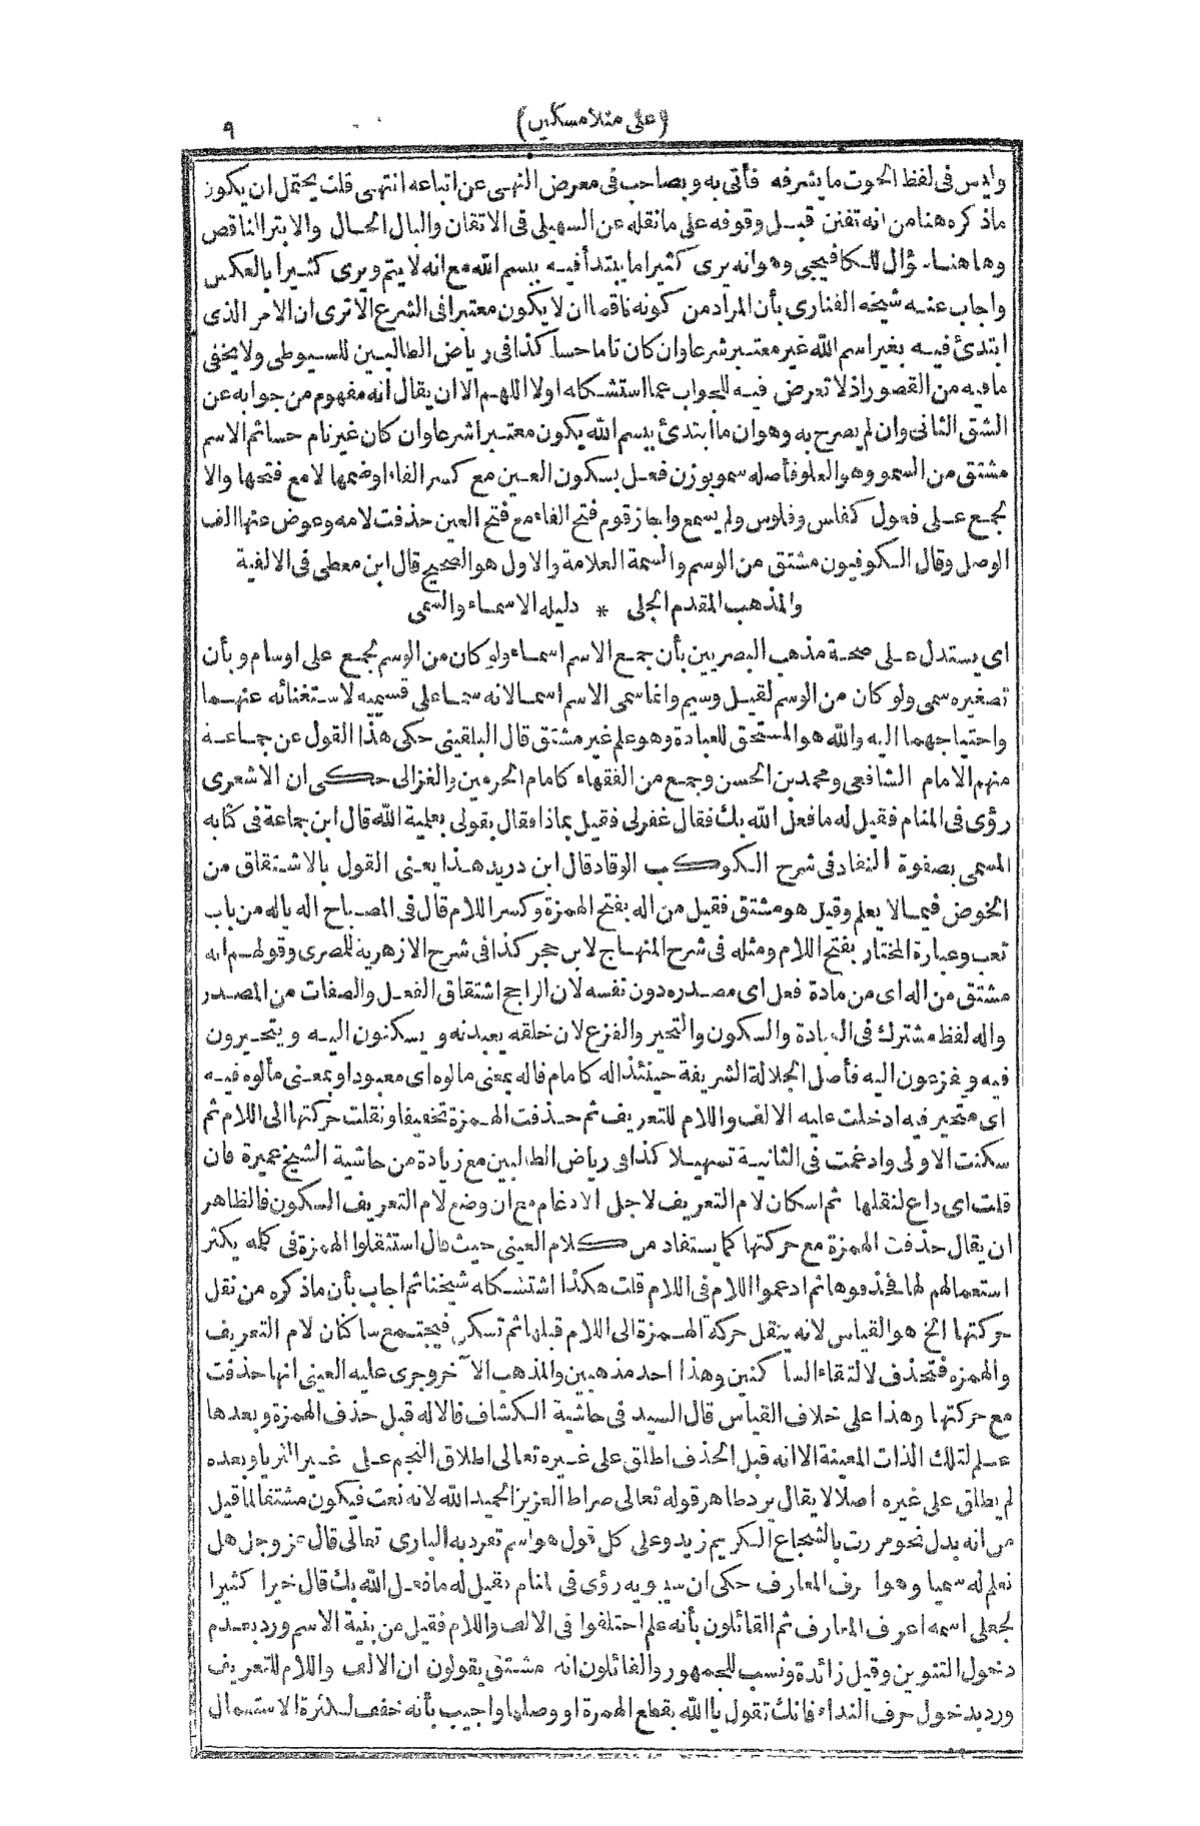 (على منلا مسكين)
٩
وليس فى لفظ الحوت ما يشرفه فأتى به وبصاحب فى معرض النهى عن اتباعه انتهى قلت يحتمل ان يكون
ماذكره هنا من انه تفنن قبل وقوفه على مانقله عن السهيلى فى الاتقان والبال الحال والابتر الناقص
وهاهنا سؤال للكافيجى وهوانه يرى كثيرا مايبتدأ فيه ببسم الله مع انه لا يتم ويرى كثيرا بالعكس
واجاب عنه شيخه الفنارى بأن المراد من كونه ناقصا ان لا يكون معتبرا فى الشرع الاترى ان الامر الذى
ابتدئ فيه بغير اسم الله غير معتبر شرعا وان كان تاما حسا كذا فى رياض الطالبين للسيوطى ولا يخفى
مافيه من القصور اذ لا تعرض فيه للجواب عما استشكاه اولا اللهم الا ان يقال انه مفهوم من جوابه عن
الشق الثانى وان لم يصرح به وهو ان ما ابتدئ ببسم الله يكون معتبرا شرعا وان كان غير تام حسا ثم الاسم
مشتق من السمو وهو العلو فأصله سمو بوزن فعل بسكون العين مع كسر الفاء اوضمها لا مع فتحها والا
لجمع على فعول كفلس وفلوس ولم يسمع واجاز قوم فتح الفاء مع فتح العين حذفت لامه وعوض عنها الف
الوصل وقال الكوفيون مشتق من الوسم والسمة العلامة والاول هو الصحيح قال ابن معطى فى الالفية
والمذهب المقدم الجلى * دليله الاسماء والسمى
اى يستدل على صحة مذهب البصريين بأن جمع الاسم اسماء ولو كان من الوسم لجمع على اوسام وبأن
تصغيره سمى ولو كان من الوسم لقيل وسيم وانما سمى الاسم اسما لانه سما على قسيميه لاستغنائه عنهما
واحتياجهما اليه والله هو المستحق للعبادة وهو علم غير مشتق قال البلقينى حكى هذا القول عن جماعة
منهم الامام الشافعى ومحمد بن الحسن وجمع من الفقهاء كامام الحرمين والغزالى حكى ان الاشعرى
رؤى فى المنام فقيل له ما فعل الله بك فقال غفرلى فقيل بماذا فقال بقولى بعلمية الله قال ابن جماعة فى كتابه
المسمى بصفوة النقاد فى شرح الكوكب الوقاد قال ابن دريد هذا يعنى القول بالاشتقاق من
الخوض فيما لا يعلم وقيل هو مشتق فقيل من اله بفتح الهمزة وكسر اللام قال فى المصباح اله ياله من باب
تعب وعبارة المختار بفتح اللام ومثله فى شرح المنهاج لابن حجر كذا فى شرح الازهرية للمصرى وقولهم انه
مشتق من اله اى من مادة فعل اى مصدره دون نفسه لان الراجح اشتقاق الفعل والصفات من المصدر
واله لفظ مشترك فى العبادة والسكون والتحير والفزع لان خلقه يعبدنه ويسكنون اليه ويتحيرون
فيه ويفزعون اليه فأصل الجلالة الشريفة حينئذ اله كامام فاله بمعنى مالوه اى معبود او بمعنى مألوه فيه
اى متحير فيه ادخلت عليه الالف واللام للتعريف ثم حذفت الهمزة تخفيفا ونقلت حركتها الى اللام ثم
سكنت الاولى وادغمت فى الثانية تسهيلا كذا فى رياض الطالبين مع زيادة من حاشية الشيخ عميرة فان
قلت اى داع لنقلها ثم اسكان لام التعريف لاجل الادغام مع ان وضع لام التعريف السكون فالظاهر
ان يقال حذفت الهمزة مع حركتها كما يستفاد من كلام العينى حيث قال استثقلوا الهمزة فى كلمه يكثر
استعمالهم لها فحذفوها ثم ادغموا اللام فى اللام قلت هكذا استشكاه شيخنا ثم اجاب بأن ماذكره من نقل
حركتها الخ هو القياس لانه ينقل حركة الهمزة الى اللام قبلها ثم تسكن فيجتمع ساكنان لام التعريف
والهمزه فتحذف لالتقاء الساكنين وهذا احد مذهبين والمذهب الآخر وجرى عليه العينى انها حذفت
مع حركتها وهذا على خلاف القياس قال السيد فى حاشية الكشاف فالاله قبل حذف الهمزة وبعدها
علم لتلك الذات المعينة الا انه قبل الحذف اطلق على غيره تعالى اطلاق النجم على غير الثريا وبعده
لم يطلق على غيره اصلا لا يقال يرد ظاهر قوله تعالى صراط العزيز الحميد الله لانه نعت فيكون مشتقا لما قيل
من انه بدل نحو مررت بالشجاع الكريم زيد وعلى كل قول هو اسم تفرد به البارى تعالى قال عز وجل هل
تعلم له سميا وهو اعرف المعارف حكى ان سيبويه رؤى فى المنام فقيل له ما فعل الله بك قال خيرا كثيرا
لجعلى اسمه اعرف المعارف ثم القائلون بأنه علم اختلفوا فى الالف واللام فقيل من بنية الاسم ورد بعدم
دخول التنوين وقيل زائدة ونسب للجمهور والقائلون انه مشتق يقولون ان الالف واللام للتعريف
ورد بدخول حرف النداء فانك تقول يا الله بقطع الهمزة او وصلها واجيب بأنه خفف لكثرة الاستعمال